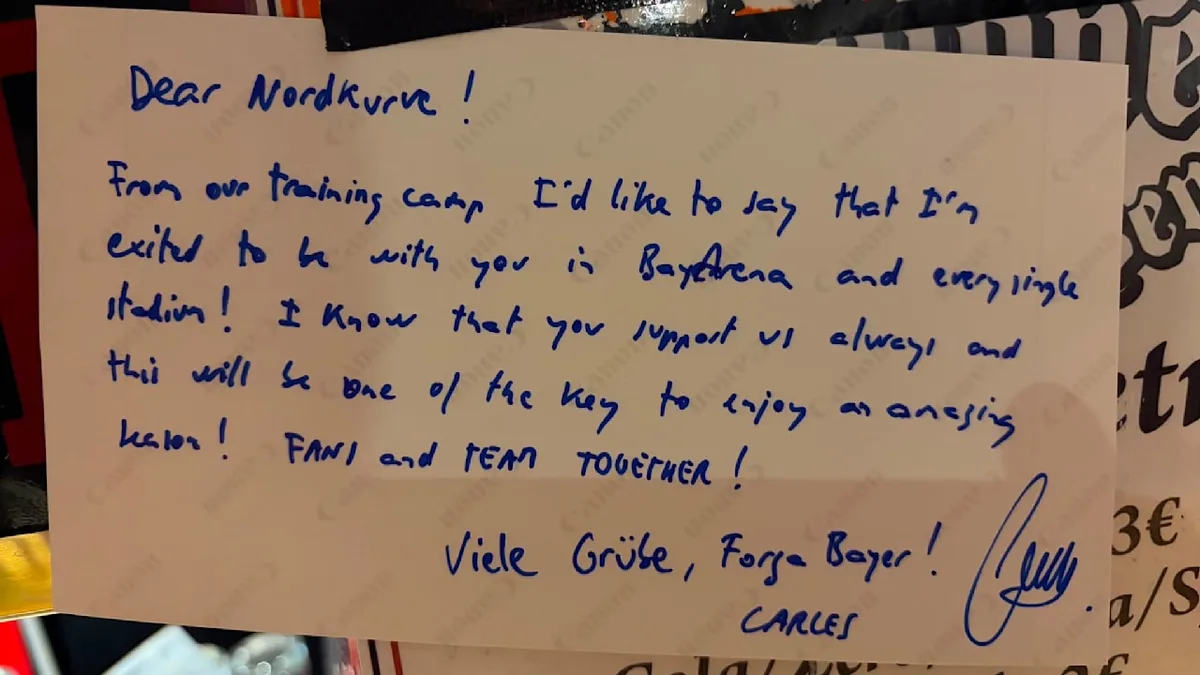 Dear Nordkurve!
From our training camp I'd like to say that I'm
exited to be with you in BayArena and every single
stadium! I know that you support us always and
this will be one of the key to enjoy an amazing
season! FANS and TEAM TOGETHER!
Viele Grüße, Forza Bayer!
CARLES
3€
a/S